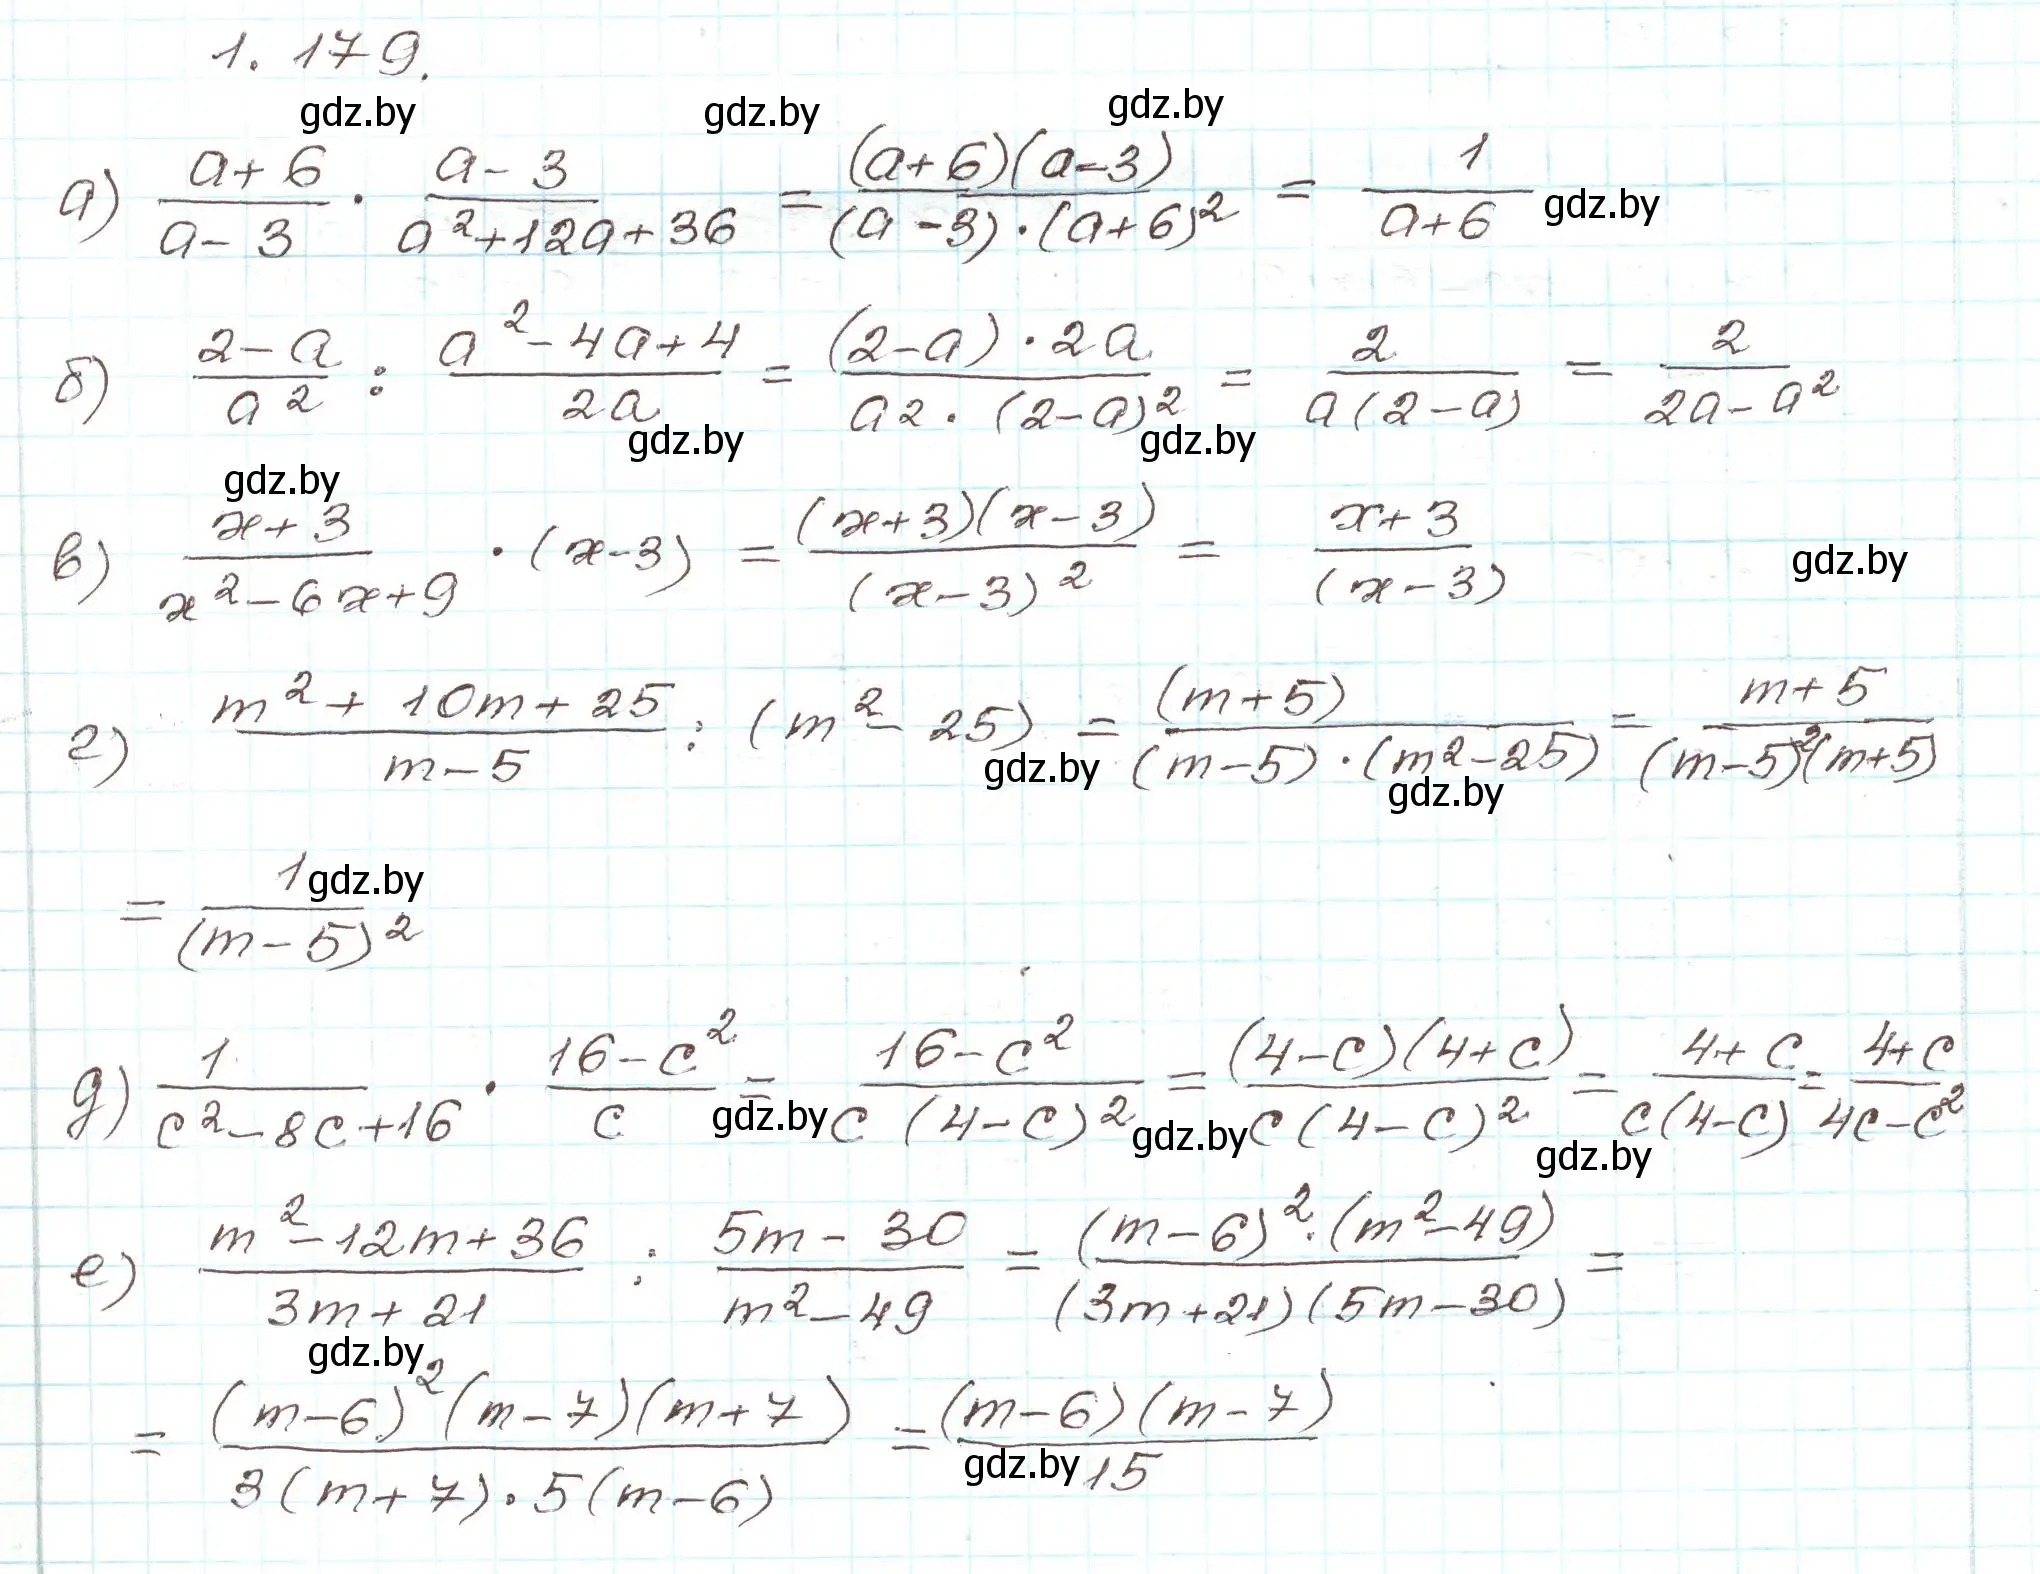 1.179.
gdz.by gdz.by gdz.by
а) \frac{a+6}{a-3} · \frac{a-3}{a^2+12a+36} = \frac{(a+6)(a-3)}{(a-3)·(a+6)^2} = \frac{1}{a+6} gdz.by
б) \frac{2-a}{a^2} : \frac{a^2-4a+4}{2a} = \frac{(2-a)·2a}{a2·(2-a)^2} = \frac{2}{a(2-a)} = \frac{2}{2a-a^2}
gdz.by gdz.by
gdz.by
в) \frac{x+3}{x^2-6x+9} · (x-3) = \frac{(x+3)(x-3)}{(x-3)^2} = \frac{x+3}{(x-3)} gdz.by
г) \frac{m^2+10m+25}{m-5} : (m^2-25) = \frac{(m+5)}{(m-5)·(m^2-25)} = \frac{m+5}{(m-5)^2(m+5)}
gdz.by gdz.by
= \frac{1}{(m-5)^2} gdz.by
д) \frac{1}{c^2-8c+16} · \frac{16-c^2}{c} = \frac{16-c^2}{c(4-c)^2} = \frac{(4-c)(4+c)}{c(4-c)^2} = \frac{4+c}{c(4-c)} = \frac{4+c}{4c-c^2}
gdz.by gdz.by gdz.by
е) \frac{m^2-12m+36}{3m+21} : \frac{5m-30}{m^2-49} = \frac{(m-6)^2·(m^2-49)}{(3m+21)(5m-30)} =
gdz.by
= \frac{(m-6)^2(m-7)(m+7)}{3(m+7)·5(m-6)} = \frac{(m-6)(m-7)}{15}
gdz.by